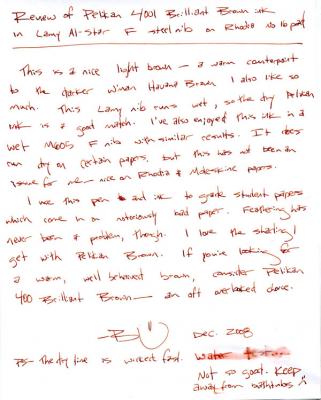 Review of Pelikan 4001 Brilliant Brown ink
in Lamy Al-Star F steel nib on Rhodia No 16 pad
This is a nice light brown — a warm counterpoint
to the darker Havana Brown I also like so
much. This Lamy nib runs wet, so the dry Pelikan
ink is a good match. I've also enjoyed this ink in a
wet M605 F nib with similar results. It does
run dry on certain papers, but this has not been an
issue for me — nice on Rhodia & Moleskine papers.
I use this pen and ink to grade student papers
which come in on notoriously bad paper. Feathering has
never been a problem, though. I love the shading I
get with Pelikan Brown. If you're looking for
a warm, well behaved brown, consider Pelikan
400 Brilliant Brown — an oft overlooked choice.
Dec. 2008
PS - The dry time is wicked fast. Water test...
Not so good. Keep
away from bathtubs